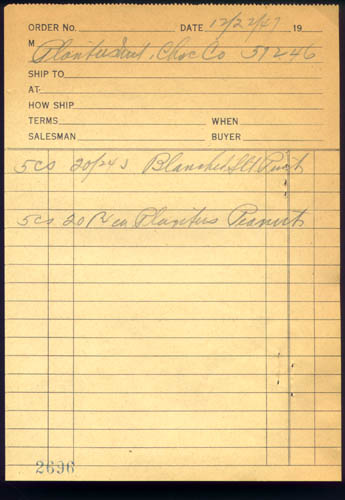 ORDER No. DATE 12/22/47 19
M Planters Nut, Choc Co 51246
SHIP TO
AT
HOW SHIP
TERMS WHEN
SALESMAN BUYER
5 cs 20/24s Blanched Slt
5 cs 20 Planters Peanuts
2696